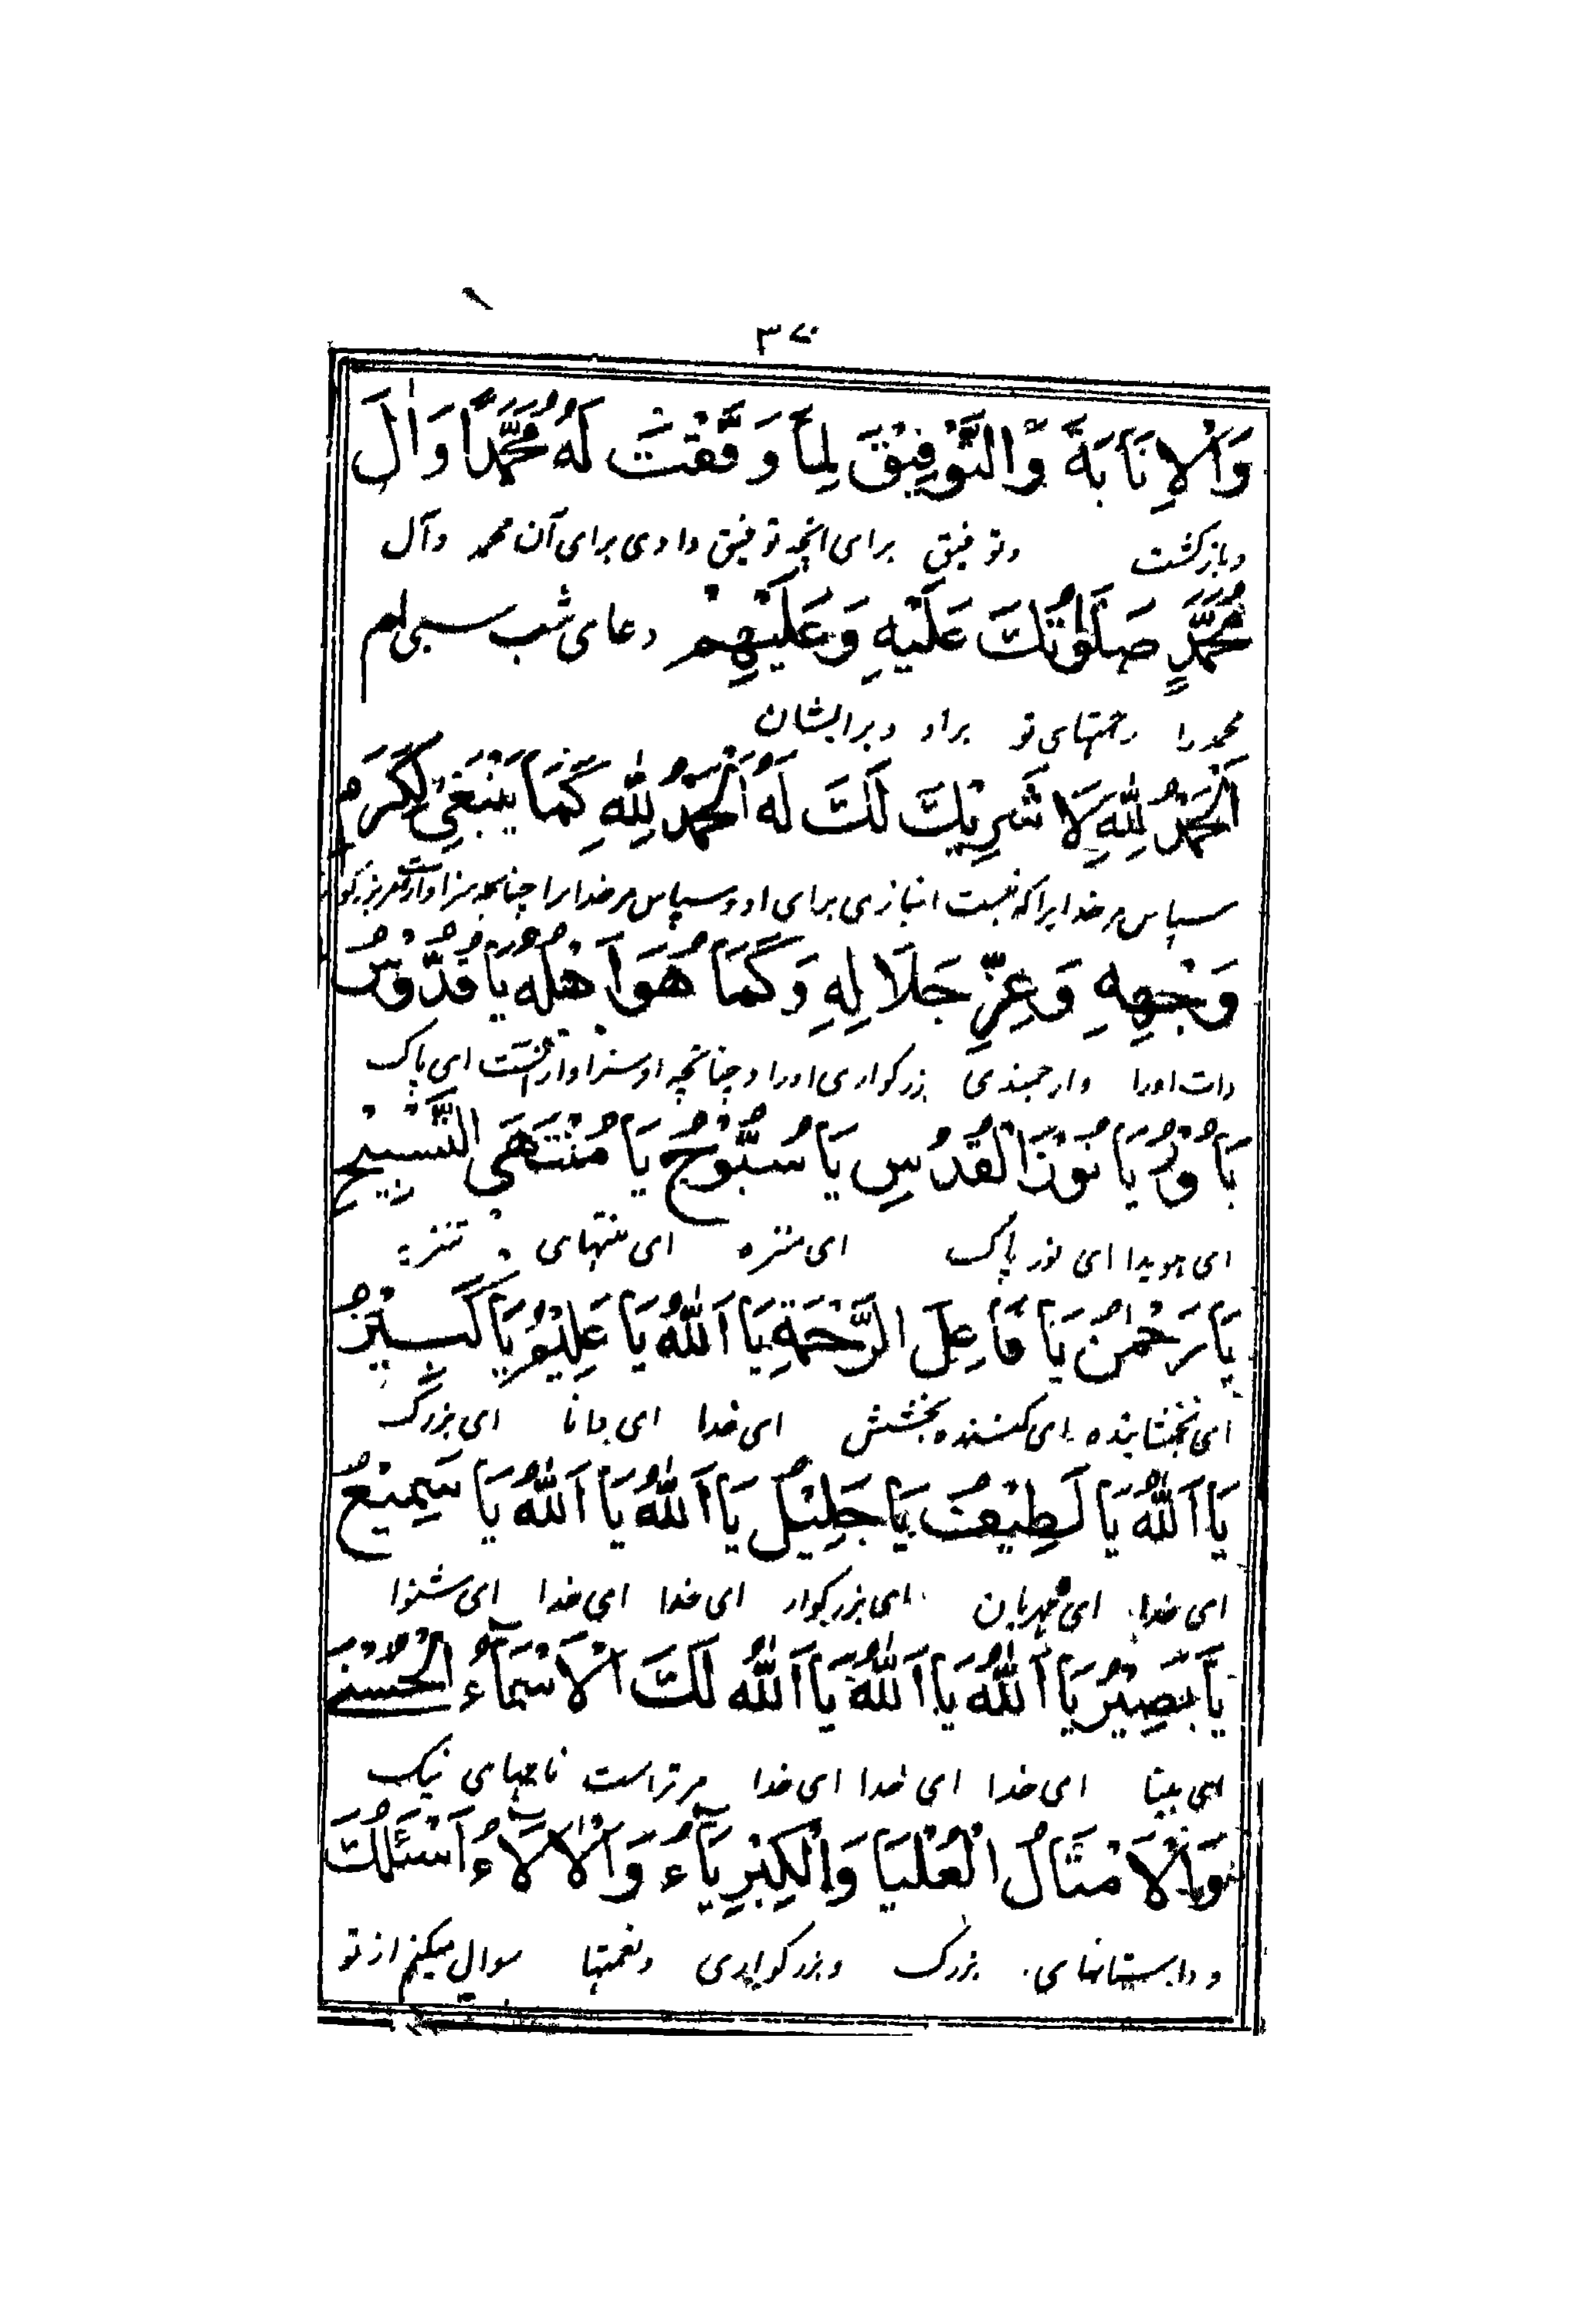 ۳۷
وَالْاِنَابَةَ وَالتَّوْفِيْقَ لِمَا وَفَّقْتَ لَهُ مُحَمَّدًا وَاٰلَ
وبازگشت وتوفیق برای انچه توفیق دادی برای آن محمد وآل
مُحَمَّدٍ صَلَوٰتُكَ عَلَيْهِ وَعَلَيْهِمْ دعای شب سی‌ام
محمد را رحمتهای تو براو وبرایشان
اَلْحَمْدُ لِلّٰهِ لَا شَرِيْكَ لَهُ اَلْحَمْدُ لِلّٰهِ كَمَا يَنْبَغِيْ لِكَرَمِ
سپاس مر خدایرا که نیست انبازی برای او وسپاس مر خدایرا چنانچه سزاوار است
وَجْهِهِ وَعِزِّ جَلَالِهِ وَكَمَا هُوَ اَهْلُهُ يَا قُدُّوْسُ
ذات اورا وارجمندی بزرگواری اورا وچنانچه او سزاوار است ای پاک
يَا نُوْرُ يَا نُوْرَ الْقُدُسِ يَا سُبُّوْحُ يَا مُنْتَهَى التَّسْبِيْحِ
ای هویدا ای نور پاک ای منزه ای منتهای تنزیه
يَا رَحْمٰنُ يَا فَاعِلَ الرَّحْمَةِ يَا اَللّٰهُ يَا عَلِيْمُ يَا كَبِيْرُ
ای بخشاینده ای کننده بخشش ای خدا ای دانا ای بزرگ
يَا اَللّٰهُ يَا لَطِيْفُ يَا جَلِيْلُ يَا اَللّٰهُ يَا اَللّٰهُ يَا سَمِيْعُ
ای خدا ای مهربان ای بزرگوار ای خدا ای خدا ای شنوا
يَا بَصِيْرُ يَا اَللّٰهُ يَا اَللّٰهُ يَا اَللّٰهُ لَكَ الْاَسْمَآءُ الْحُسْنٰى
ای بینا ای خدا ای خدا ای خدا مر تراست نامهای نیک
وَالْاَمْثَالُ الْعُلْيَا وَالْكِبْرِيَآءُ وَالْاٰلَآءُ اَسْئَلُكَ
وداستانهای بزرگ وبزرگواری ونعمتها سوال میکنم از تو